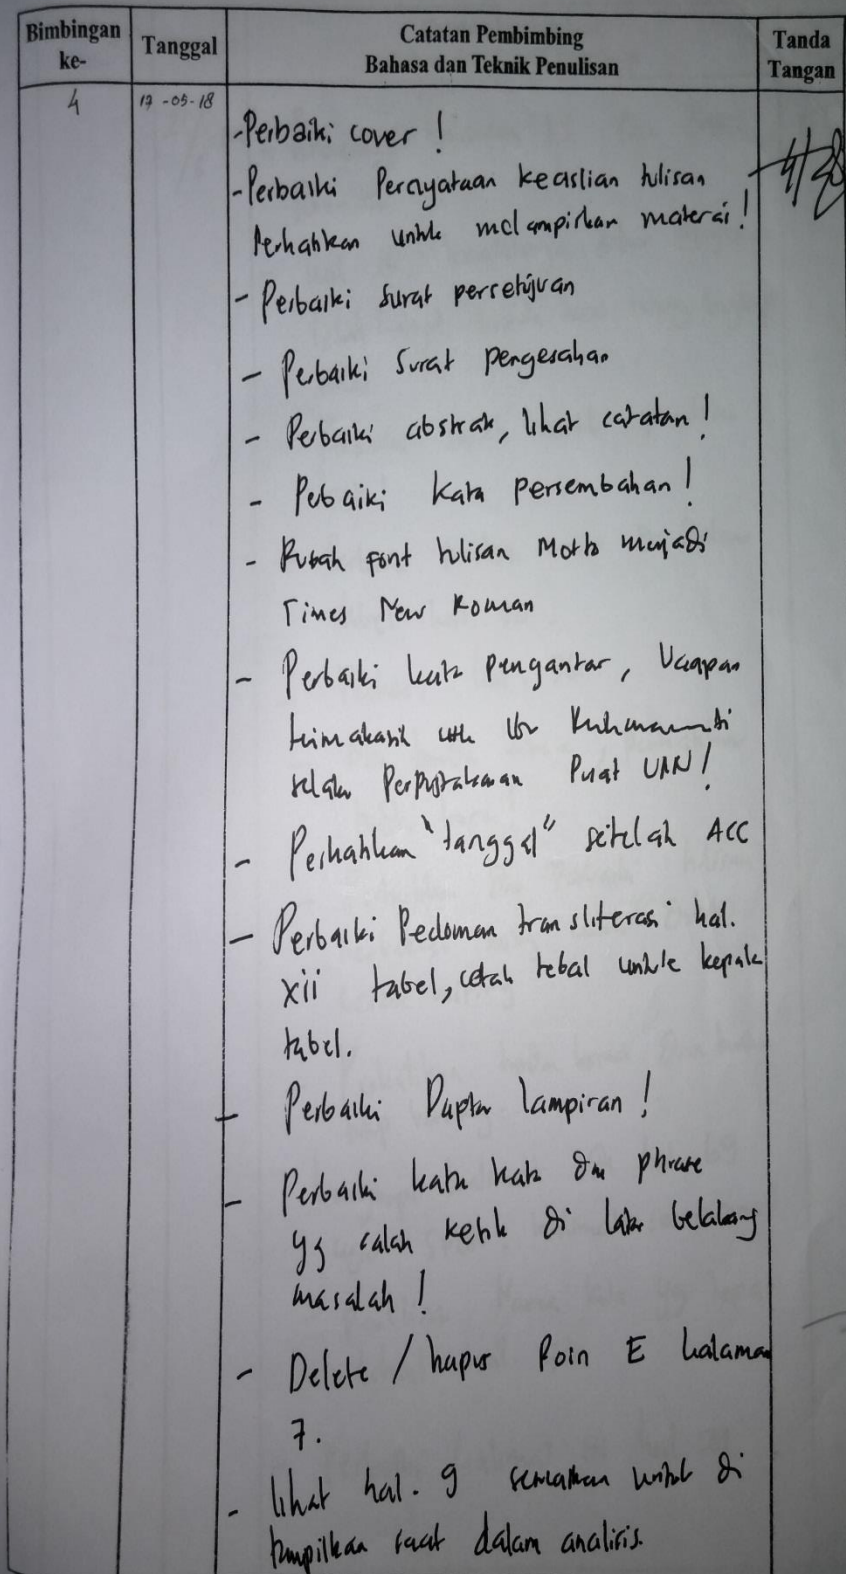 Bimbingan ke-
Tanggal
Catatan Pembimbing
Bahasa dan Teknik Penulisan
Tanda Tangan
4
17-05-18
- Perbaiki cover !
- Perbaiki Pernyataan keaslian tulisan
Perhatikan untuk melampirkan materai !
- Perbaiki surat persetujuan
- Perbaiki Surat pengesahan
- Perbaiki abstrak, lihat catatan !
- Perbaiki kata persembahan !
- Rubah font tulisan Motto menjadi
Times New Roman
- Perbaiki kata pengantar, Ucapan
terimakasih utk Ibu
selaku Perpustakawan Pusat UNN !
- Perhatikan "tanggal" setelah ACC
- Perbaiki Pedoman transliterasi hal.
xii tabel, cetak tebal untuk kepala
tabel.
- Perbaiki Daptar lampiran !
- Perbaiki kata kata dan phrase
yg salah ketik di latar belakang
masalah !
- Delete / hapus Poin E halaman
7.
- lihat hal. 9 untuk di
tampilkan saat dalam analisis.